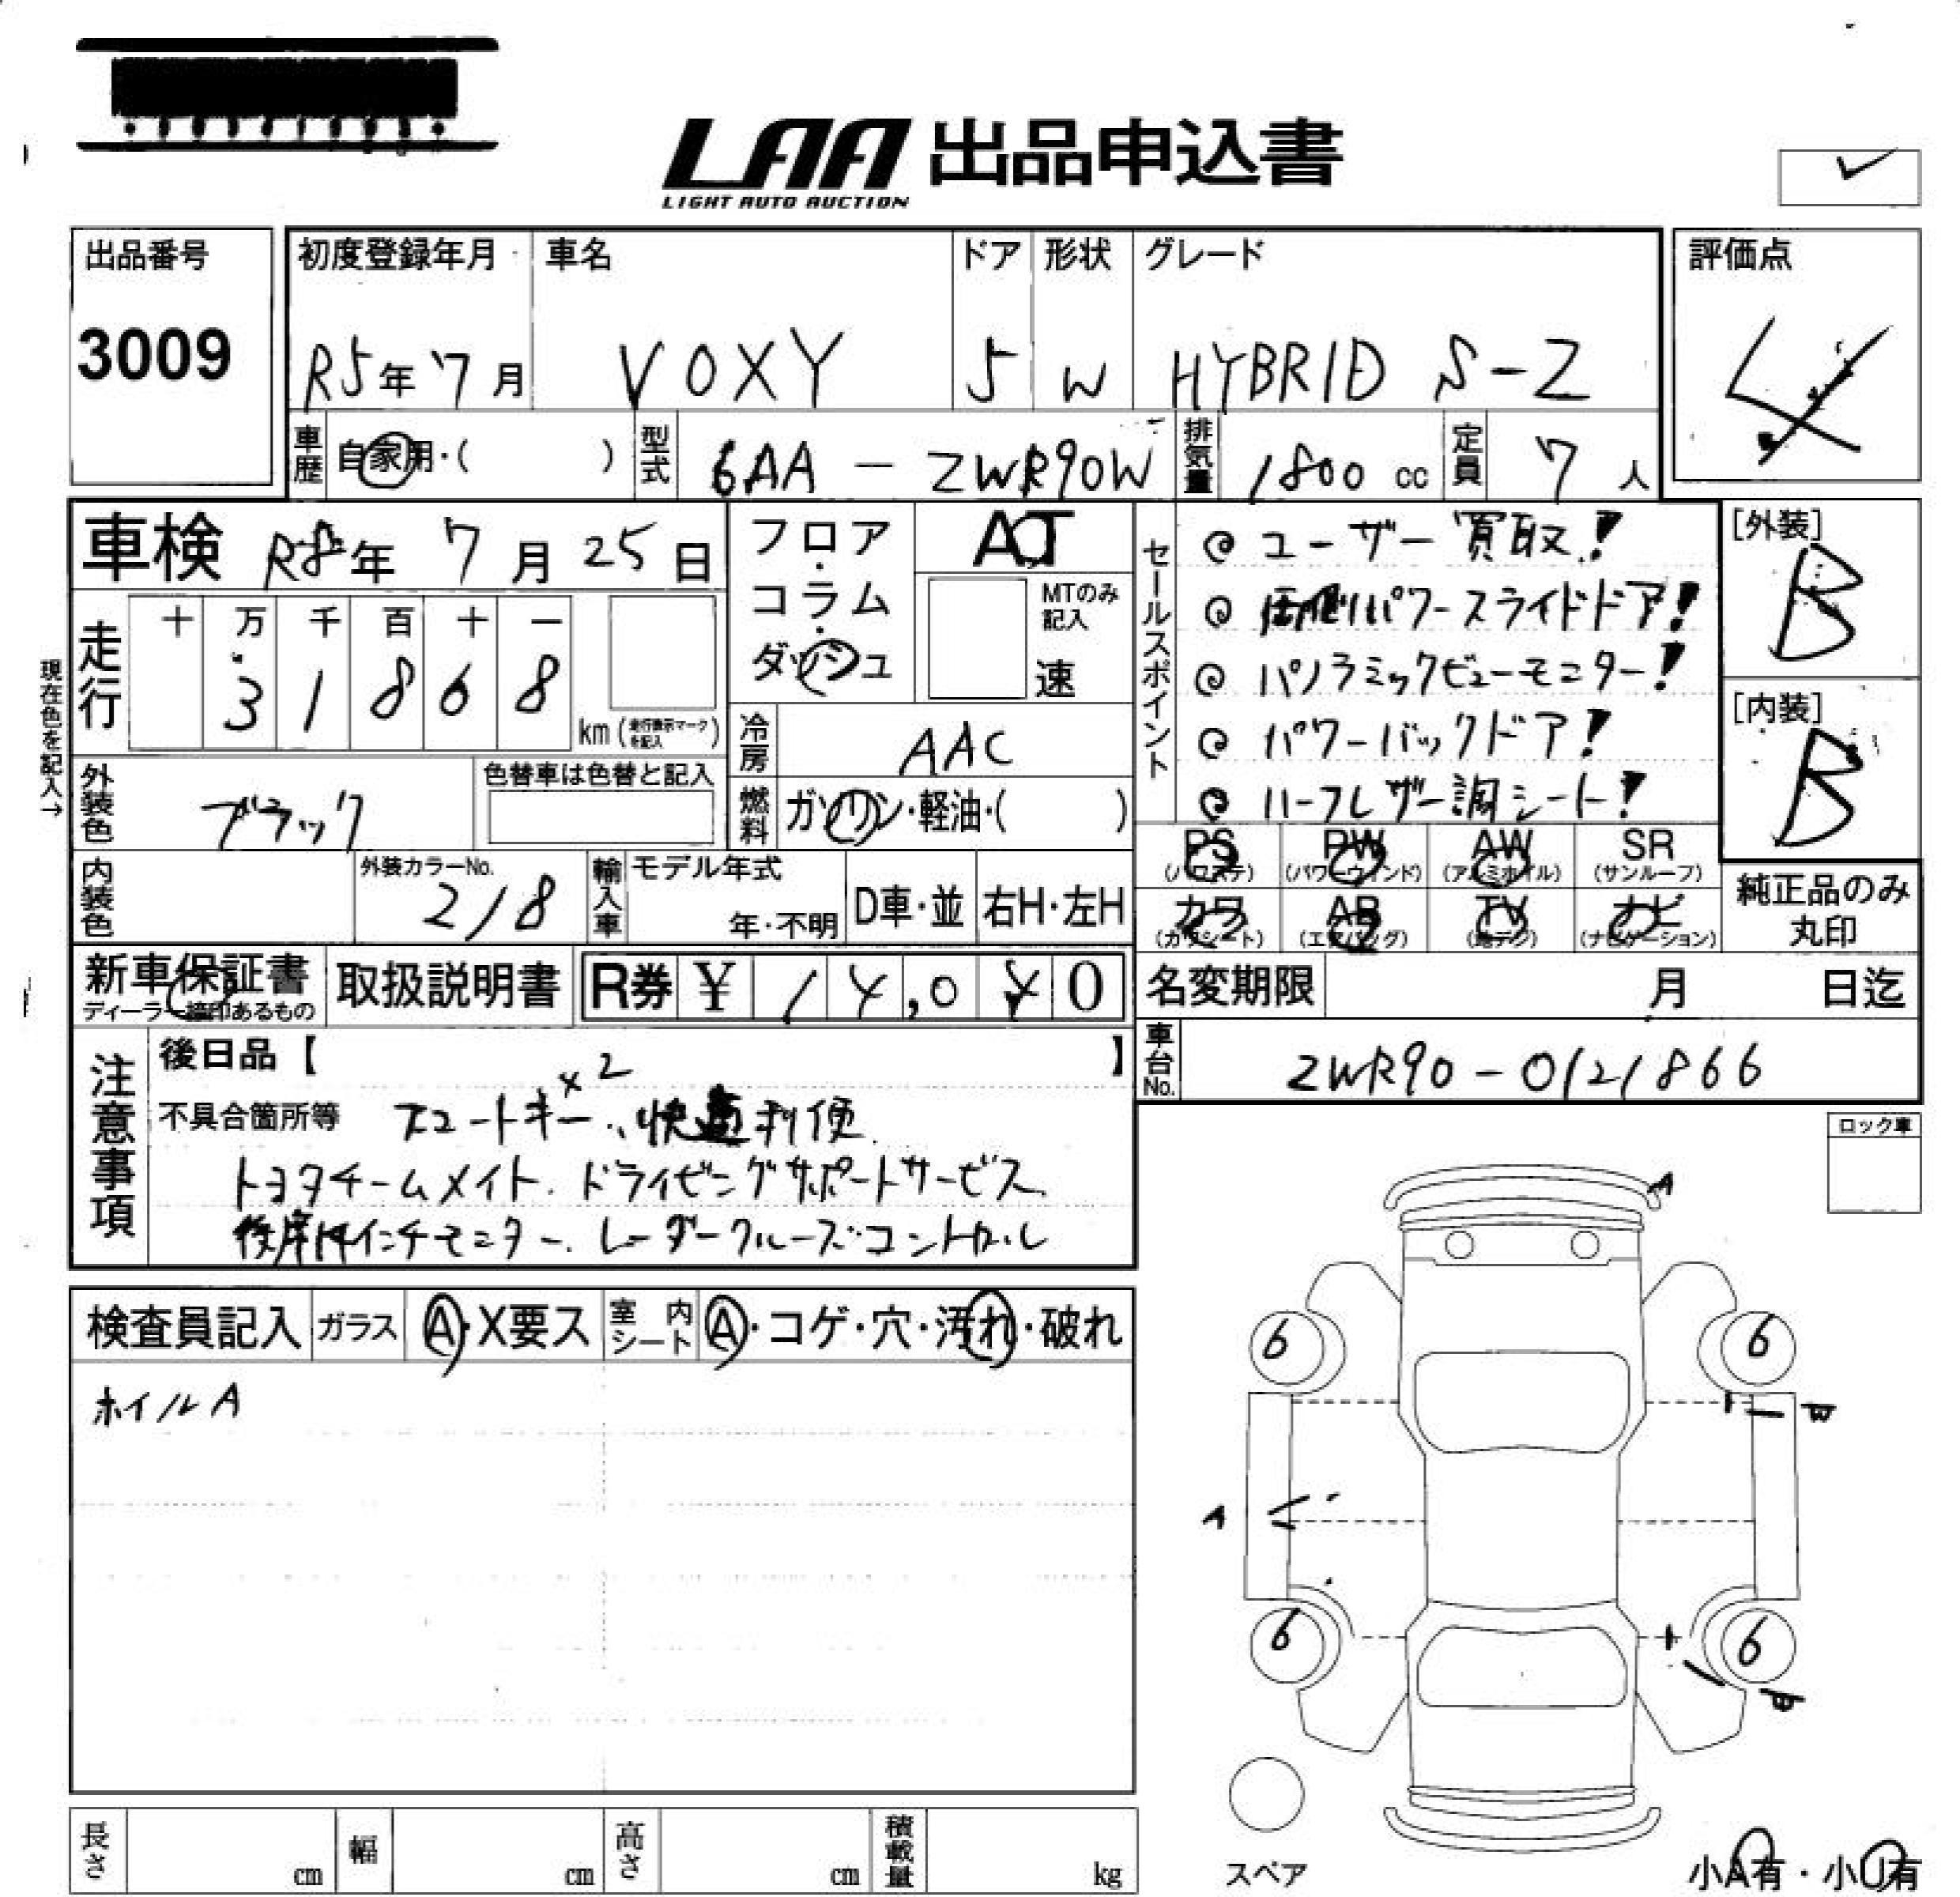 LAA 出品申込書
LIGHT AUTO AUCTION
出品番号
3009
初度登録年月 車名 ドア 形状 グレード
R5年 7月 VOXY 5 W HYBRID S-Z
評価点
4
車歴 自家用・( ) 型式 6AA - ZWR90W 排気量 1800 cc 定員 7 人
車検 R8年 7月 25日
フロア・コラム・ダッシュ
AT
MTのみ記入
速
セールスポイント
ユーザー買取!
両側パワースライドドア!
パノラミックビューモニター!
パワーバックドア!
ハーフレザー調シート!
[外装]
B
[内装]
B
現在色を記入→
走行
十 万 千 百 十 一
3 1 8 6 8
km (走行表示マークを記入)
冷房 AAC
外装色 ブラック
色替車は色替と記入
燃料 ガソリン・軽油・( )
内装色
外装カラーNo.
218
輸入車 モデル年式
年・不明
D車・並 右H・左H
PS PW AW SR
(パワステ) (パワーウィンド) (アルミホイル) (サンルーフ)
カワ AB TV ナビ
(カワシート) (エアバッグ) (地デジ) (ナビゲーション)
純正品のみ
丸印
新車保証書
ディーラー捺印あるもの
取扱説明書
R券 ¥ 1 4,0 4 0
名変期限 月 日迄
車台No. ZWR90-0121866
注意事項
後日品【 】
×2
不具合箇所等 スマートキー、快適利便
トヨタチームメイト、ドライビングサポートサービス、
後席14インチモニター、レーダークルーズコントロール
ロック車
検査員記入 ガラス A・X要ス 室内シート A・コゲ・穴・汚れ・破れ
ホイルA
A
6 6
W
A
6 6
スペア
小A有・小U有
長さ cm 幅 cm 高さ cm 積載量 kg